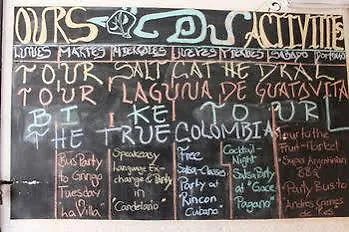 OURS & CDS ACTIVITIE
LUNES MARTES MIERCOLES JUEVES VIERNES SABADO DOMINGO
TOUR SALT CATHEDRAL
TOUR LAGUNA DE GUATAVITA
BIKE TOUR
THE TRUE COLOMBIA
Bus Party
to Gringo
Tuesday
in
"La Villa"
Speakeasy
Language Ex-
change & Party
in
"Candelario"
Free
Salsa-Classes
Party at
Rincon
Cubano"
Cocktail-
Night
Salsa Party
at "Goce
Pagano"
Tour to the
Fruit-Market
Super Argentinian
BBQ
Party Bus to
"Andres Carnes
de Res"